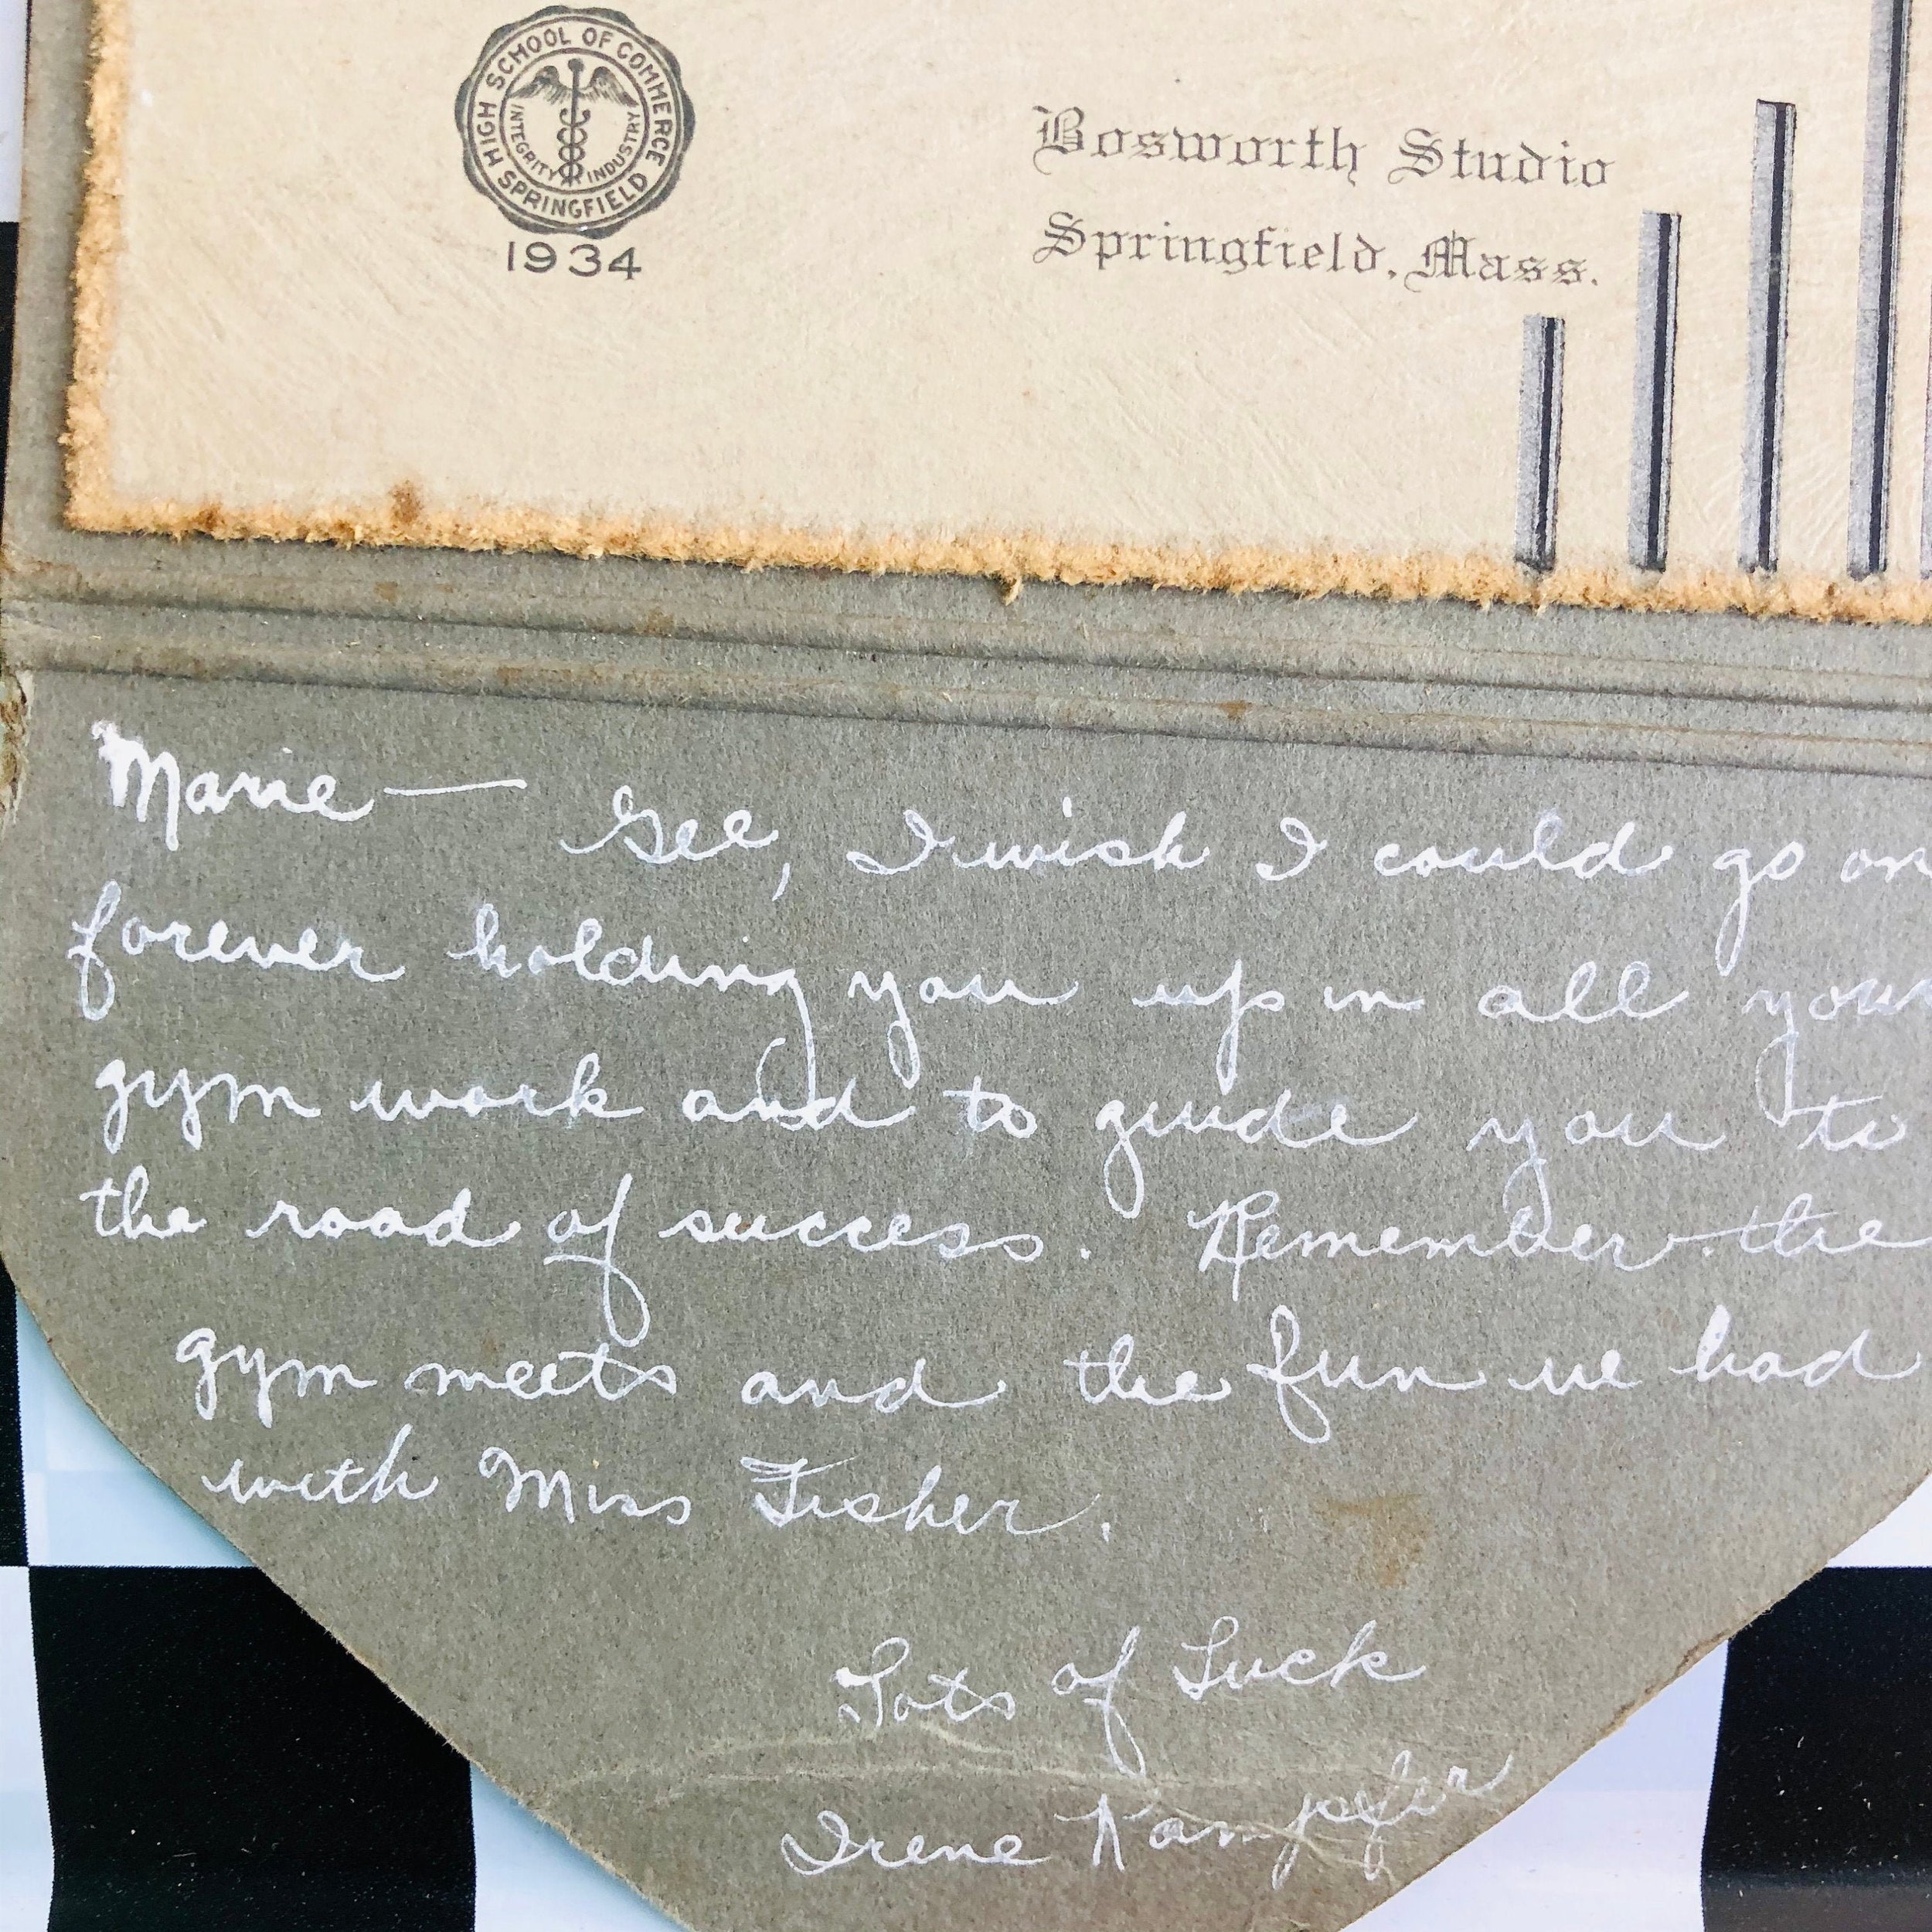 HIGH SCHOOL OF COMMERCE
INTEGRITY INDUSTRY
SPRINGFIELD
1934
Bosworth Studio
Springfield, Mass.
Marie — Gee, I wish I could go on
forever holding you up in all your
gym work and to guide you to
the road of success. Remember the
gym meets and the fun we had
with Miss Fisher.
Lots of Luck
Irene Kampfer